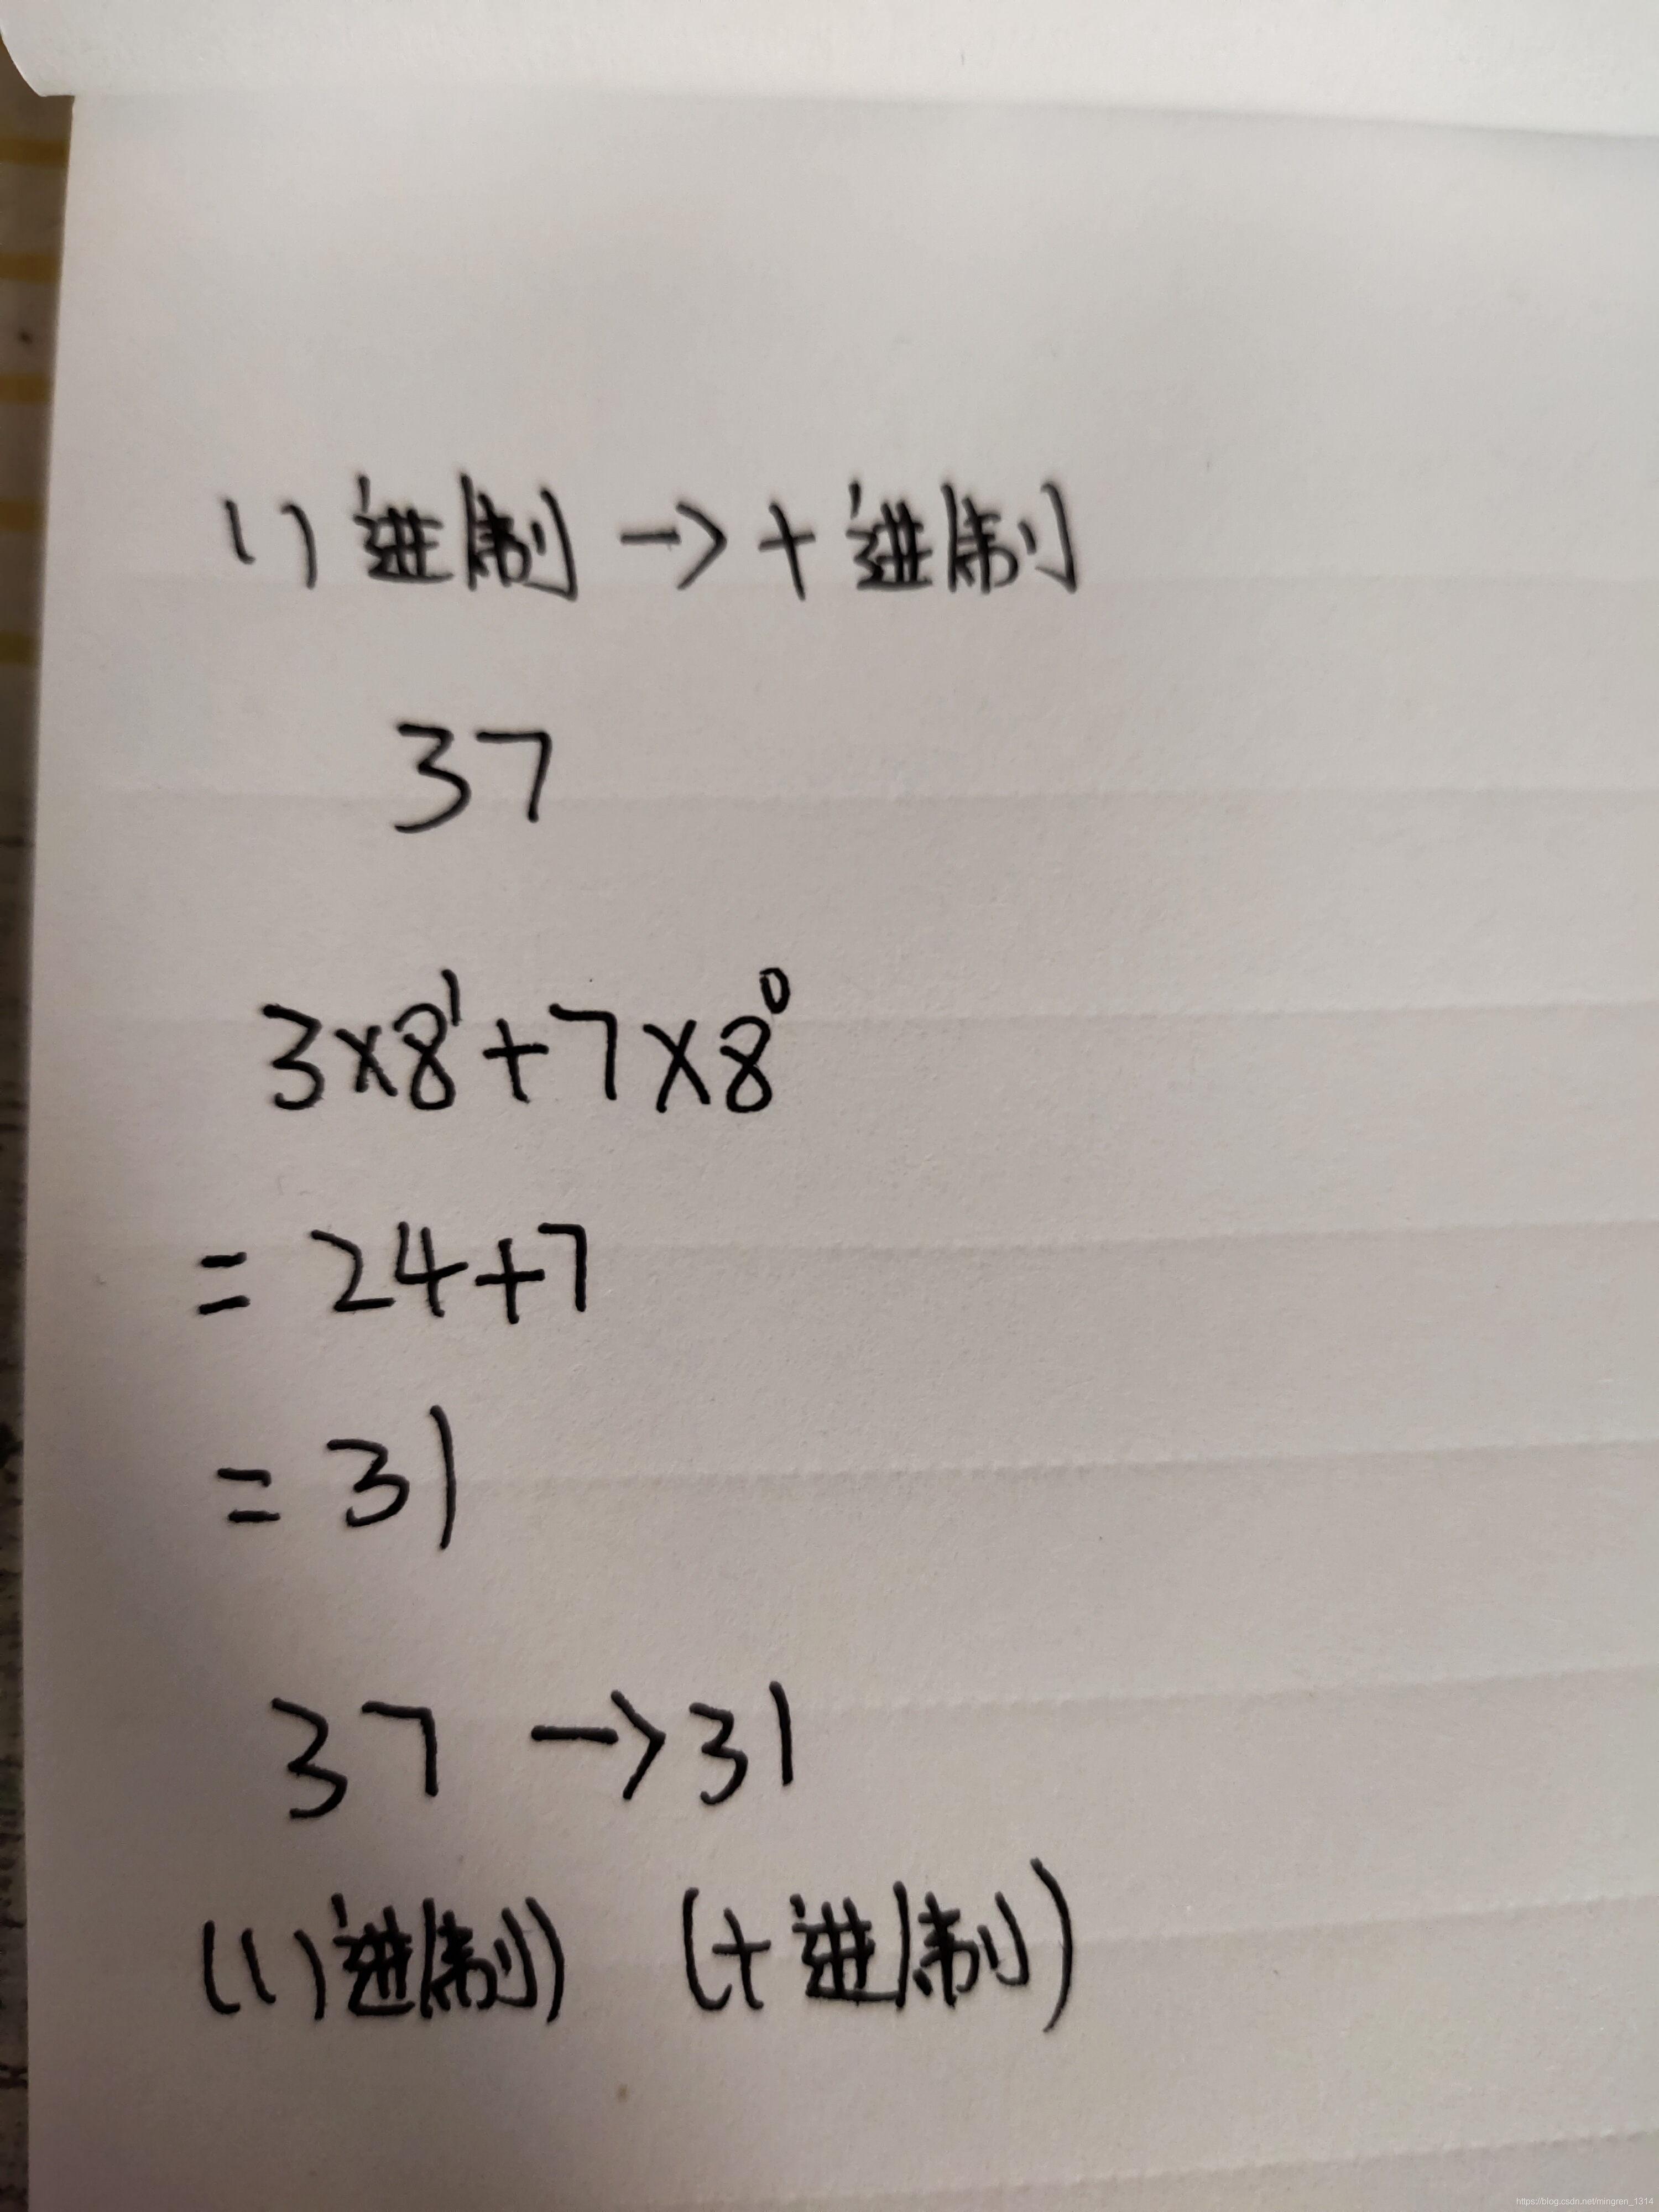 八进制 → 十进制
37
3×8¹+7×8⁰
= 24+7
= 31
37 → 31
(八进制) (十进制)
https://blog.csdn.net/mingren_1314